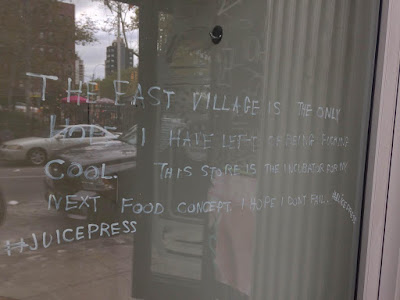 THE EAST VILLAGE IS THE ONLY
HOPE I HAVE LEFT OF BEING FUCKING
COOL. THIS STORE IS THE INCUBATOR FOR MY
NEXT FOOD CONCEPT. I HOPE I DONT FAIL.
#JUICEPRESS